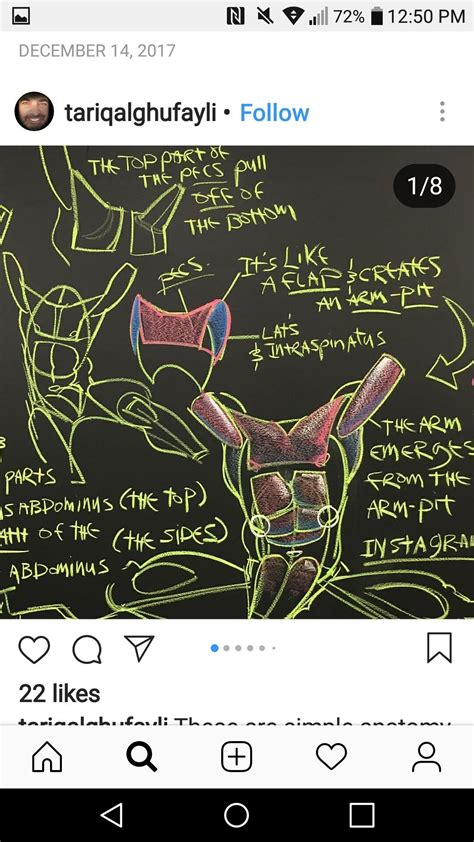 72% 12:50 PM
DECEMBER 14, 2017
tariqalghufayli • Follow
1/8
THE TOP PART OF
THE PECS PULL
OFF OF
THE BOTTOM
PECS
IT'S LIKE
A FLAP & CREATES
AN ARM-PIT
LATS
& INTRASPINATUS
THE ARM
EMERGES
FROM THE
ARM-PIT
INSTAGRA
PARTS
S ABDOMINUS (THE TOP)
OF THE (THE SIDES)
ABDOMINUS
22 likes
tariqalghufayli These are simple anatomy